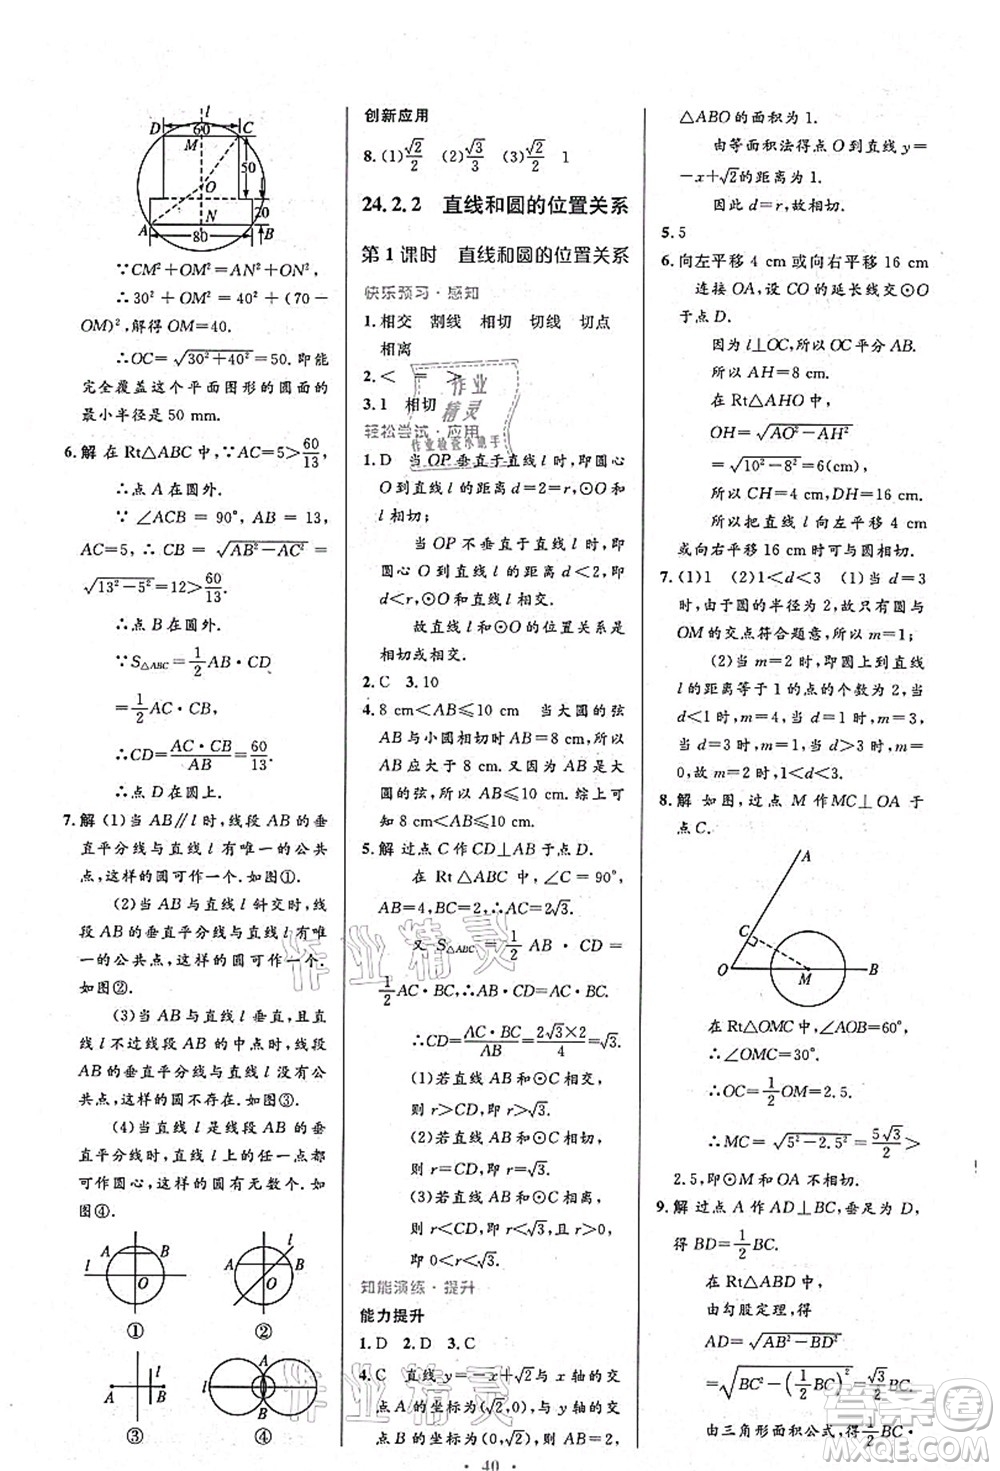 l
D 60 C
M
50
O
N
20
A 80 B
∵CM²+OM²=AN²+ON²,
∴30²+OM²=40²+(70-
OM)²,解得OM=40.
∴OC=√(30²+40²)=50.即能
完全覆盖这个平面图形的圆面的
最小半径是50 mm.
6.解 在Rt△ABC中,∵AC=5>60/13,
∴点A在圆外.
∵∠ACB=90°,AB=13,
AC=5,∴CB=√(AB²-AC²)=
√(13²-5²)=12>60/13,
∴点B在圆外.
∵S△ABC=1/2 AB·CD
=1/2 AC·CB,
∴CD=AC·CB/AB=60/13.
∴点D在圆上.
7.解 (1)当AB∥l时,线段AB的垂
直平分线与直线l有唯一的公共
点,这样的圆可作一个.如图①.
(2)当AB与直线l斜交时,线段
AB的垂直平分线与直线l有唯一
的公共点,这样的圆可作一个.
如图②.
(3)当AB与直线l垂直,且直
线l不过线段AB的中点时,线段
AB的垂直平分线与直线l没有公
共点,这样的圆不存在.如图③.
(4)当直线l是线段AB的垂
直平分线时,直线l的任一点都
可作圆心,这样的圆有无数个.如
图④.
A B l O
①
A B l O
②
A l B
③
l A B
④
创新应用
8.(1)√2/2 (2)√3/3 (3)√2/2 1
24.2.2 直线和圆的位置关系
第1课时 直线和圆的位置关系
快乐预习·感知
1.相交 割线 相切 切线 切点
相离
2.< = >
3.1 相切
轻松尝试·应用
1.D 当OP垂直于直线l时,即圆心
O到直线l的距离d=2=r,⊙O与
l相切;
当OP不垂直于直线l时,即
圆心O到直线l的距离d<2,即
d<r,⊙O与直线l相交.
故直线l和⊙O的位置关系是
相切或相交.
2.C 3.10
4.8 cm<AB≤10 cm 当大圆的弦
AB与小圆相切时AB=8 cm,所以
AB应大于8 cm.又因为AB是大
圆的弦,所以AB≤10 cm.综上可
知8 cm<AB≤10 cm.
5.解 过点C作CD⊥AB于点D.
在Rt△ABC中,∵∠C=90°,
AB=4,BC=2,∴AC=2√3.
又S△ABC=1/2 AB·CD=
1/2 AC·BC,
∴CD=AC·BC/AB=2√3×2/4=√3.
(1)若直线AB和⊙C相交,
则r>CD,即r>√3.
(2)若直线AB和⊙C相切,
则r=CD,即r=√3.
(3)若直线AB和⊙C相离,
则r<CD,即r<√3,另外r>0,
即0<r<√3.
知能演练·提升
能力提升
1.D 2.D 3.C
4.C 直线y=-x+√2与x轴的交
点A的坐标为(√2,0),与y轴的交
点B的坐标为(0,√2),所以
△ABO的面积为1.
由面积法得点O到直线y=
-x+√2的距离为1.
因此d=r,故相切.
5.5
6.向左平移4 cm或向右平移16 cm
连接OA,设CO的延长线交⊙O
于点D.
因为l⊥OC,所以OC平分AB.
所以AH=8 cm.
在Rt△AHO中,
OH=√(AO²-AH²)=
√(10²-8²)=6(cm),
所以CH=4 cm,DH=16 cm.
所以把直线l向左平移4 cm或
向右平移16 cm时可与圆相切.
7.(1)1 (2)1<d<3 (1)当d=3
时,由于圆的半径为2,故只有圆与
OM的交点符合题意,所以m=1;
(2)当m=2时,即圆上到直线
l的距离等于1的点的个数为2,当
d<1时,m=4,当d=1时,m=3;
当d=3时,m=1;当d>3时,m=
0,故当m=2时,1<d<3.
8.解 如图,过点M作MC⊥OA于
点C.
A
C
O M B
在Rt△OMC中,∠AOB=60°,
∴∠OMC=30°.
∴OC=1/2 OM=2.5.
∴MC=√(5²-2.5²)=5√3/2>
2.5,即⊙M和OA不相切.
9.解 过点A作AD⊥BC,垂足为D,
得BD=1/2 BC.
在Rt△ABD中,
由勾股定理,得
AD=√(AB²-BD²)=
√(BC²-(1/2 BC)²)=√3/2 BC.
由三角形面积公式,得1/2 BC·
· 40 ·
作业精灵
作业检查小助手
作业精灵
作业精灵
答案圈
MXQE.COM